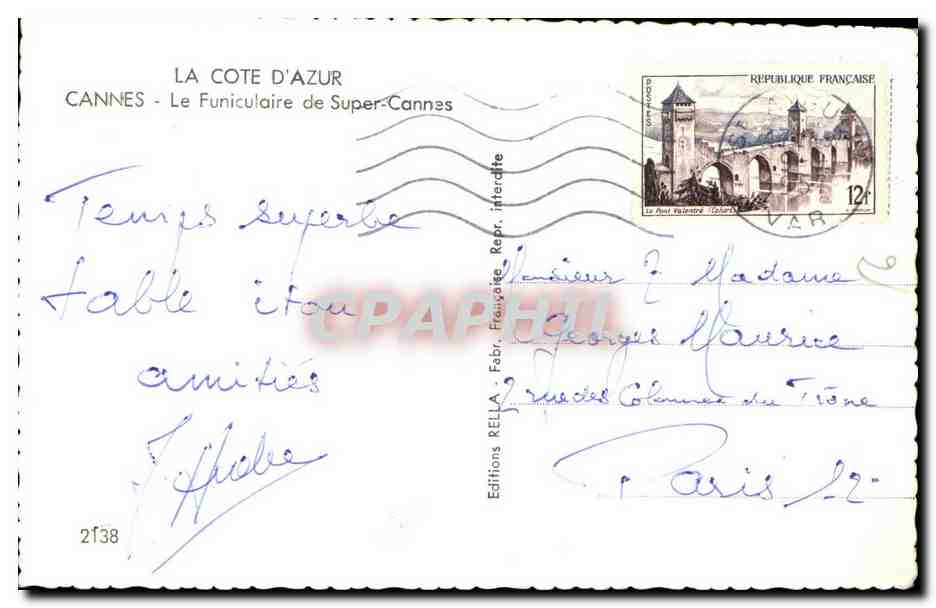 LA COTE D'AZUR
CANNES - Le Funiculaire de Super-Cannes
POSTES
REPUBLIQUE FRANÇAISE
12f
Le Pont Valentré (Cahors)
VAR
Temps superbe
table itou
amitiés
2138
Editions RELLA - Fabr. Française Repr. interdite
Monsieur & Madame
Georges Maurice
2 rue des Colonnes du Trône
Paris 12
CPAPHIL